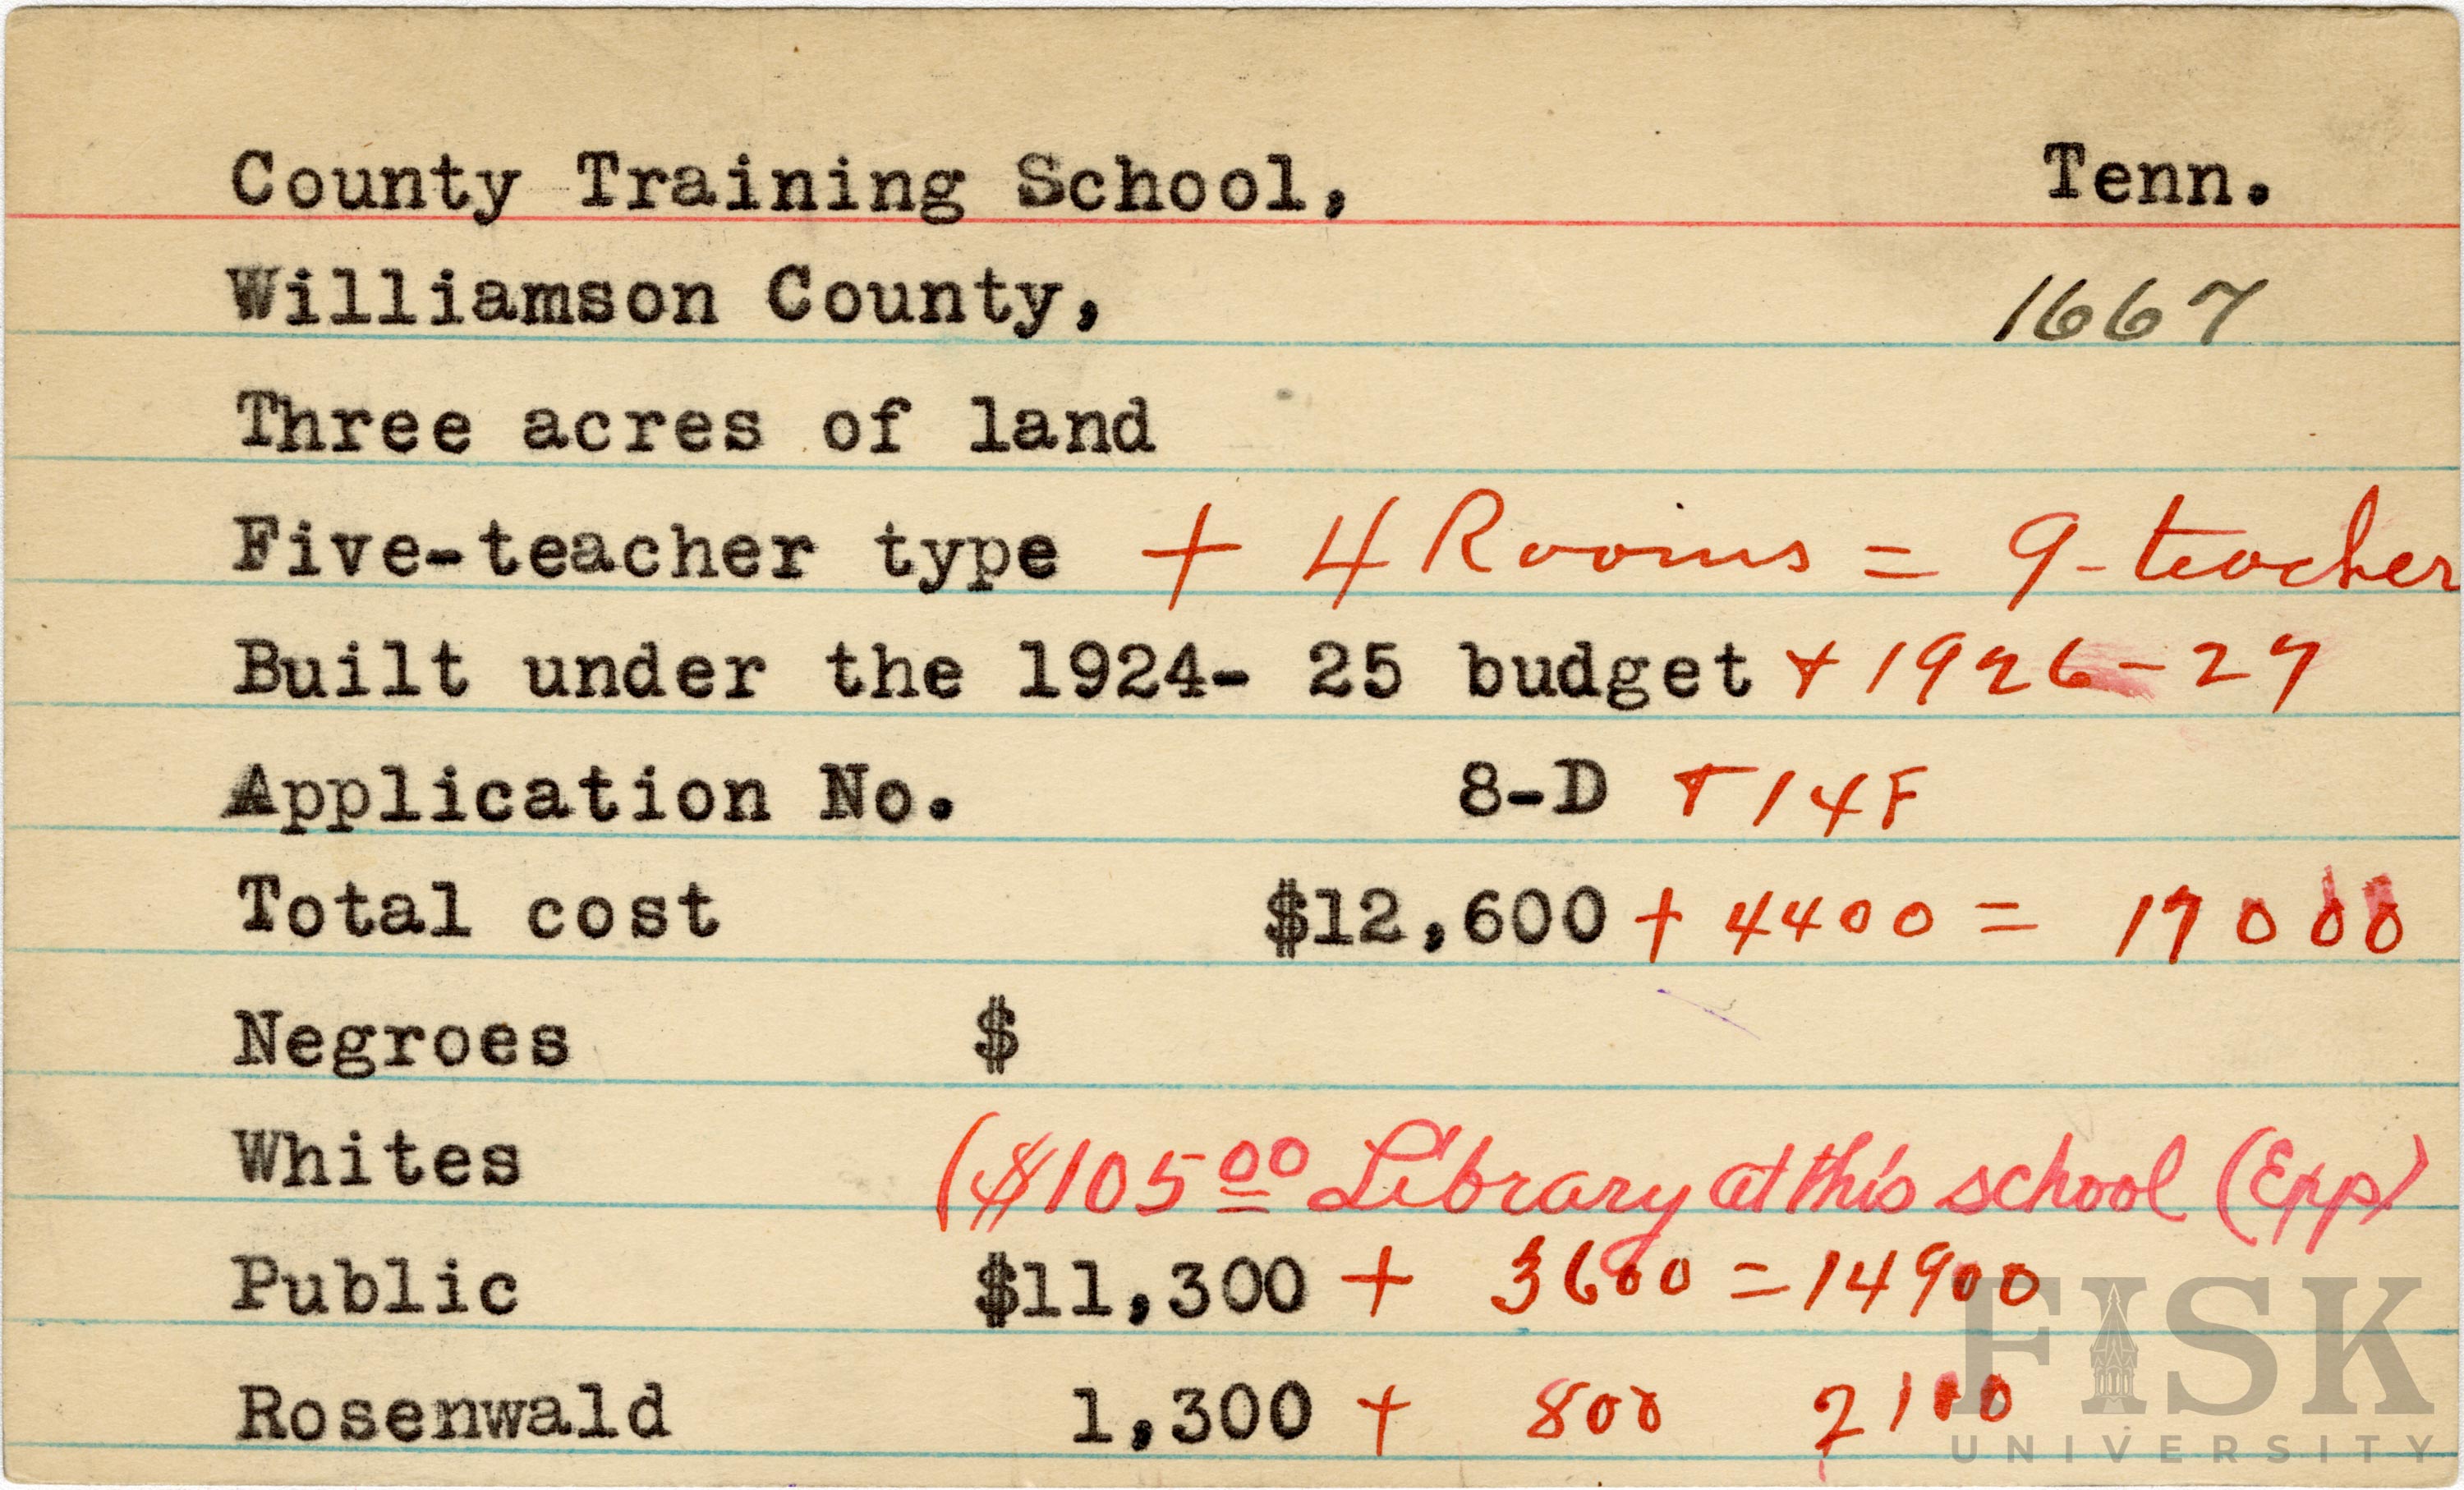 County Training School, Tenn.
Williamson County, 1667
Three acres of land
Five-teacher type + 4 Rooms = 9-teacher
Built under the 1924- 25 budget + 1926-27
Application No. 8-D + 14F
Total cost $12,600 + 4400 = 17000
Negroes $
Whites ($105.00 Library at this school (Epps)
Public $11,300 + 3600 = 14900
Rosenwald 1,300 + 800 2100
FISK
UNIVERSITY